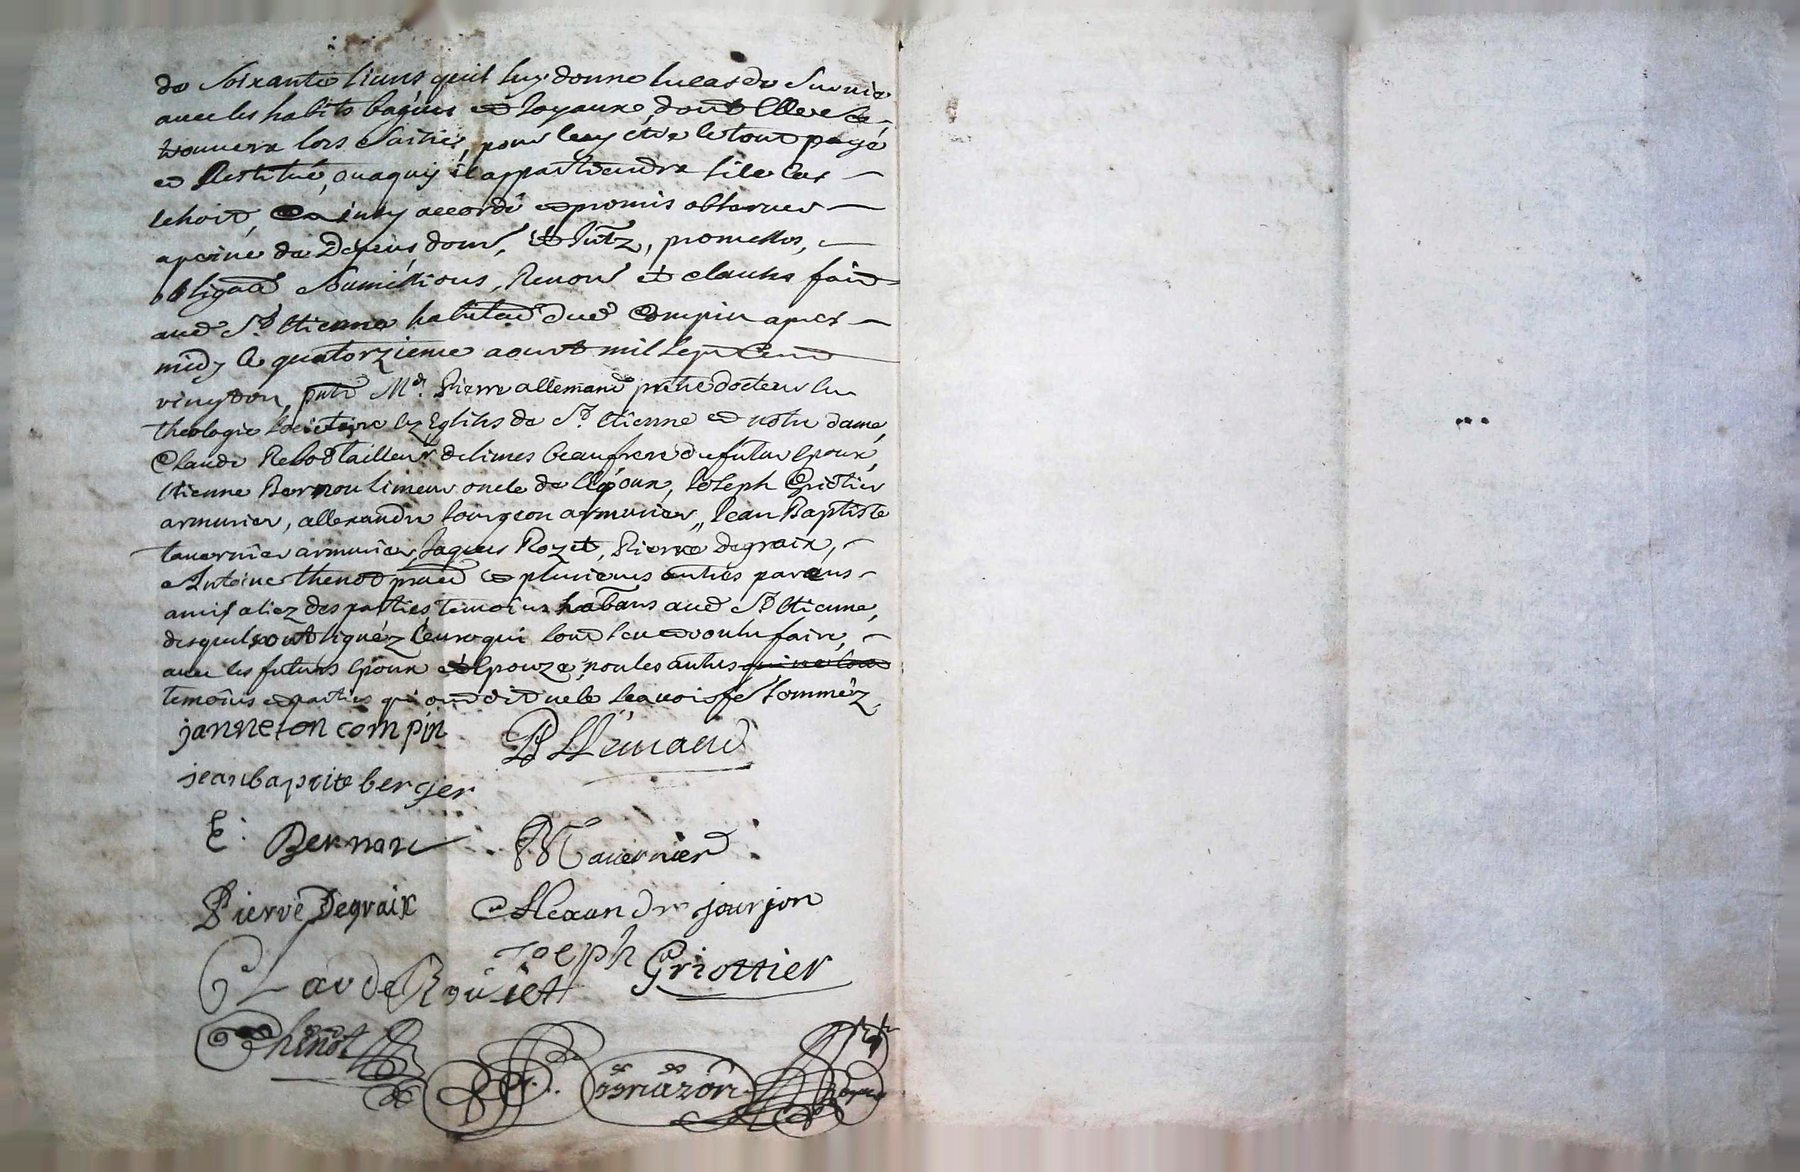 de Soixante livres quil luy donne en cas de Survie
avec les habits bagues et Joyaux, dont Elle se
trouvera lors Saisie, pour leuy être le tout payé
et Restitué, ou a quy il appartiendra sile cas
echoit, Ainsy accordé et promis observer
apeine de Depens, dom, et Intz, promettes,
obligaõn Soumitions, Renons et clauses fait
aud St Etienne habitaõn dud Compin apres
midy le quatorzieme aoust mil Sept Cent
vingt , pnts Me. Pierre allemand pretre docteur en
theologie Societaire ez Eglises de St. Etienne et notre dame,
Claude tailleur de limes beaufrere du futur Epoux,
Etienne Bernou limeur oncle de l'Epoux, Joseph Griotier
armurier, allexandre Jourgeon armurier, Jean Baptiste
tavernier armurier, Jaques Rozet, Pierre degraix,
Antoine thenot et plusieurs autres parens
amis aliez des parties temoins habitans aud St Etienne,
desquels ont signéz Ceux qui l'ont Sceu et voulu faire,
avec les futurs Epoux et Epouze, non les autres qui ne l'ont
temoins et parties qui ont dit ne le Scavoir de ce Sommez
janneton compin
P Allemand
jean baptite berger
E: Bernou
Tavernier
Pierre Degraix
Alexandre jourjon
Joseph Griottier
Claude
Thenot